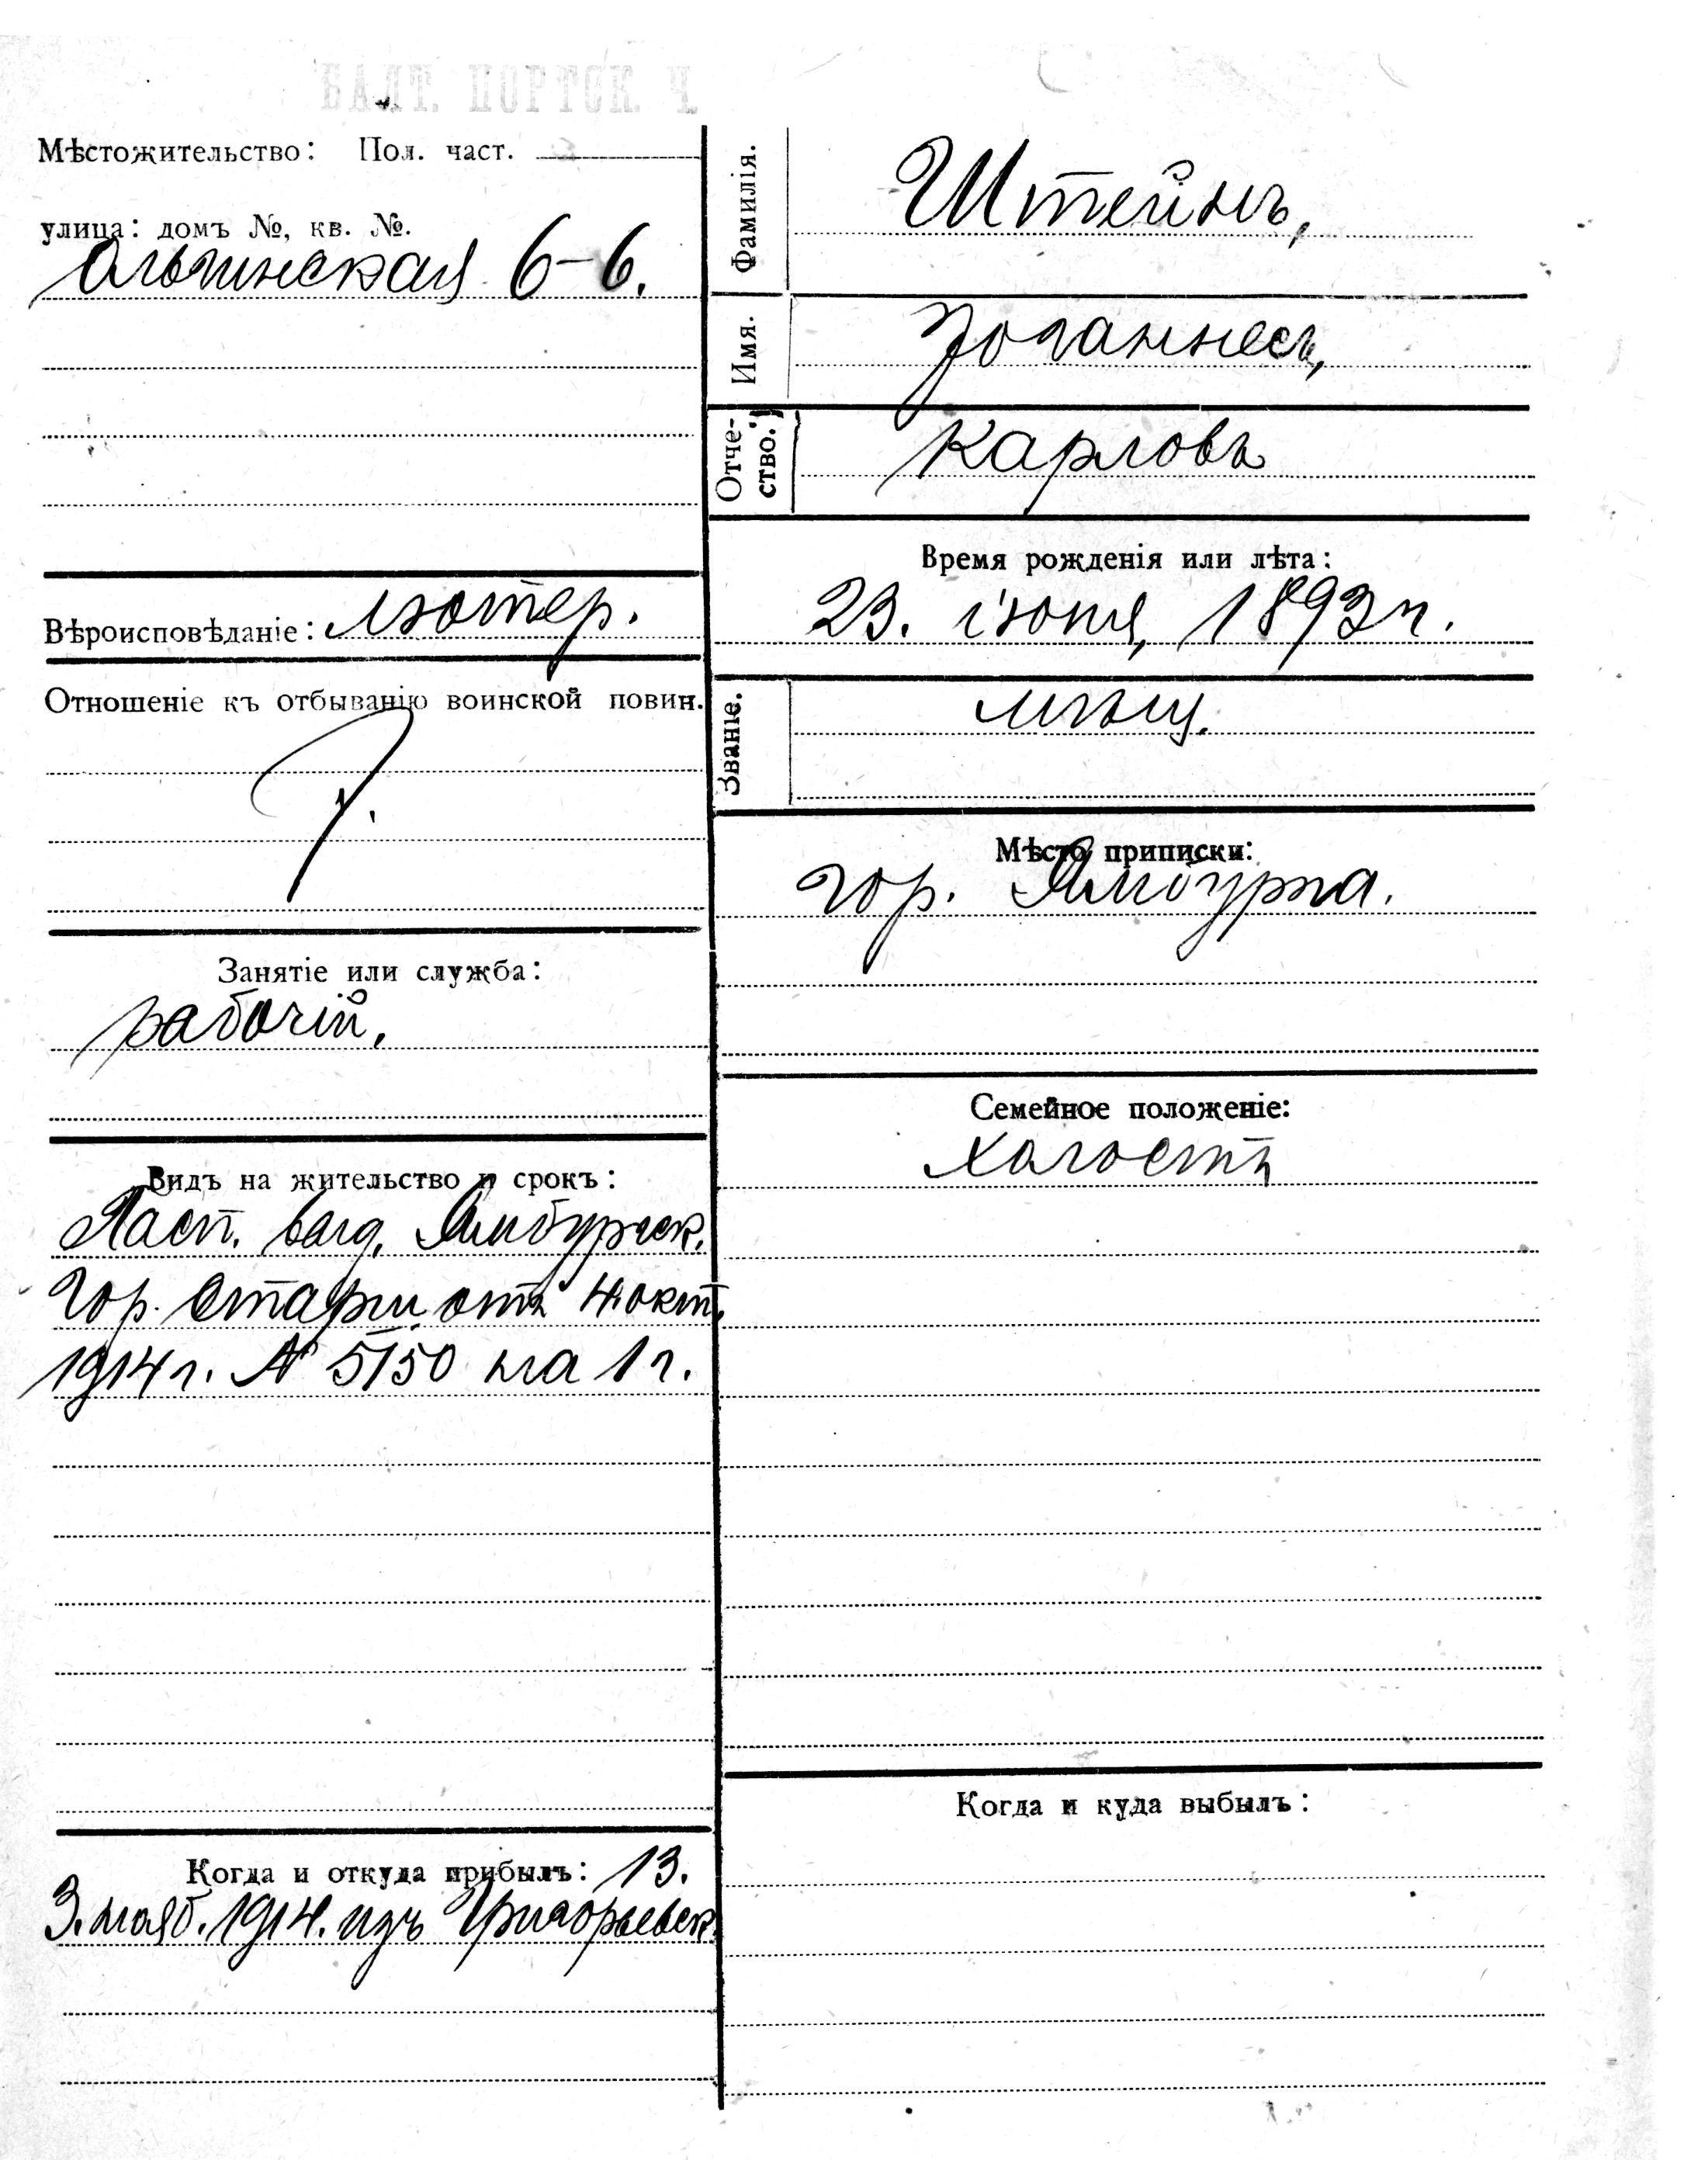 БАЛТ. ПОРТСК. Ч.
Мѣстожительство: Пол. част.
улица: домъ №, кв. №.
Ольгинская 6-6.
Вѣроисповѣданіе: лютер.
Отношеніе къ отбыванію воинской повин.
?
Занятіе или служба:
рабочій.
Видъ на жительство и срокъ:
Пасп. выд. Ямбургск.
Гор. Старш. отъ 4. окт.
1914 г. № 5150 на 1 г.
Когда и откуда прибылъ: 13.
3. нояб. 1914. изъ Григорьевск.
Фамилія. Штейнъ,
Имя. Іоганнесъ,
Отче-
ство. Карловъ
Время рожденія или лѣта:
23. іюня, 1893 г.
Званіе. мѣщ.
Мѣсто приписки:
гор. Ямбурга.
Семейное положеніе:
Холостъ
Когда и куда выбылъ: